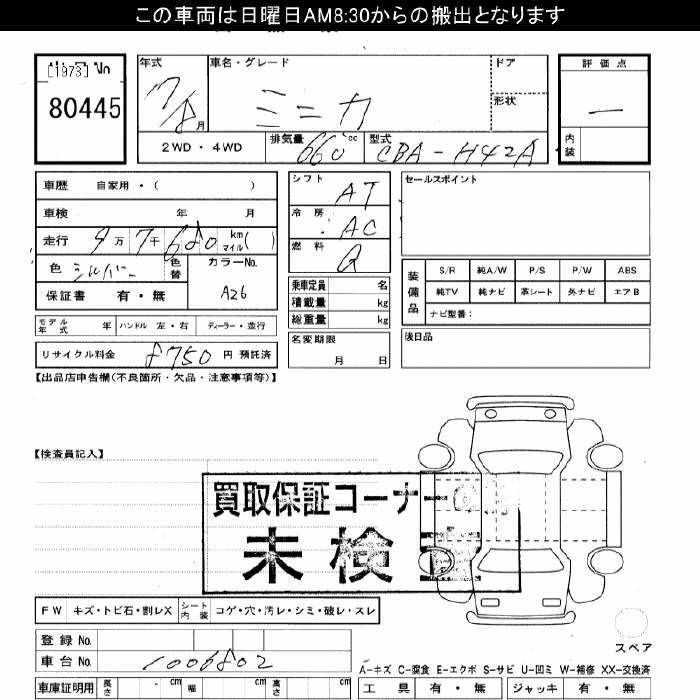 この車両は日曜日AM8:30からの搬出となります
[1973] No
80445
年式 車名・グレード ドア 評価点
17/8 月 ミニカ 形状 —
2WD・4WD 排気量 660 cc 型式 CBA-H42A 内装
車歴 自家用・( )
車検 年 月
走行 9万7千680 km マイル( )
色 シルバー 色替 カラーNo.
保証書 有・無 A26
シフト AT
冷房 AC
燃料 G
乗車定員 名
積載量 kg
総重量 kg
セールスポイント
装備品 S/R 純A/W P/S P/W ABS
純TV 純ナビ 革シート 外ナビ エアB
ナビ型番：
モデル年式 年 ハンドル 左・右 ディーラー・並行
名変期限 月 日
後日品
リサイクル料金 8750 円 預託済
【出品店申告欄(不良箇所・欠品・注意事項等)】
【検査員記入】
買取保証コーナー
未検
FW キズ・トビ石・割レX シート内装 コゲ・穴・汚レ・シミ・破レ・スレ
登録No.
車台No. 1006802
スペア
A-キズ C-腐食 E-エクボ S-サビ U-凹ミ W-補修 XX-交換済
車庫証明用 長さ - cm 幅 cm 高さ cm 工具 有・無 ジャッキ 有・無